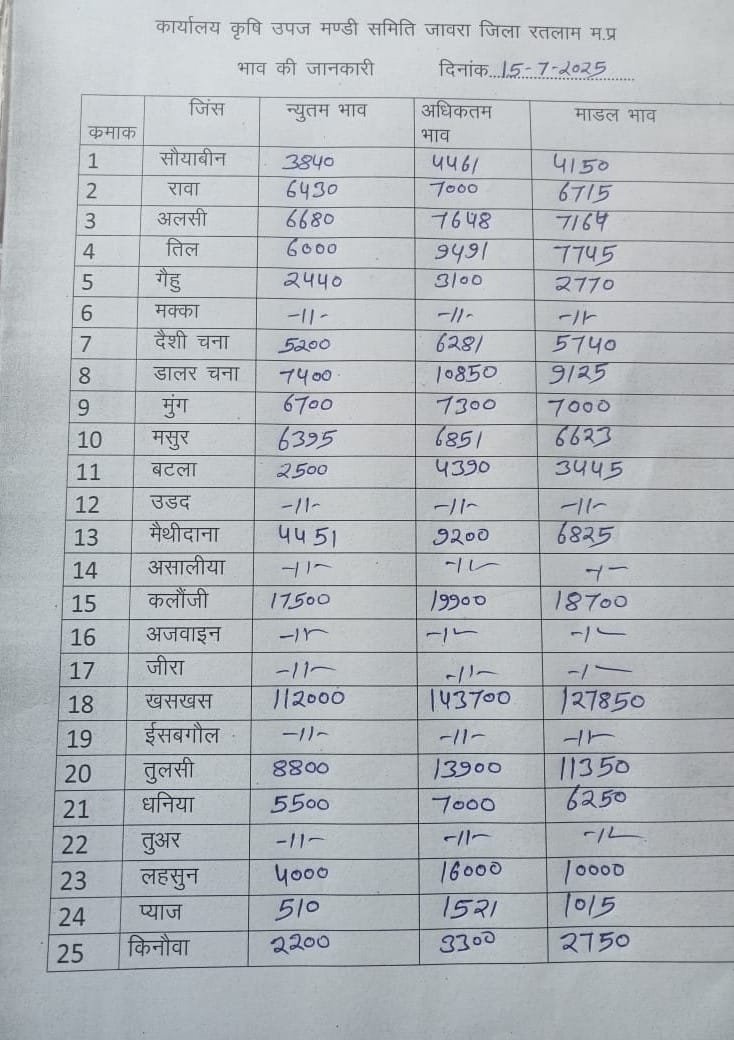 कार्यालय कृषि उपज मण्डी समिति जावरा जिला रतलाम म.प्र
भाव की जानकारी दिनांक 15-7-2025
कमाक जिंस न्युतम भाव अधिकतम भाव माडल भाव
1 सौयाबीन 3840 4461 4150
2 रावा 6430 7000 6715
3 अलसी 6680 7648 7164
4 तिल 6000 9491 7745
5 गैहु 2440 3100 2770
6 मक्का -11- -11- -11-
7 दैशी चना 5200 6281 5740
8 डालर चना 7400 10850 9125
9 मुंग 6700 7300 7000
10 मसुर 6395 6851 6623
11 बटला 2500 4390 3445
12 उडद -11- -11- -11-
13 मैथीदाना 4451 9200 6825
14 असालीया -11- -11- -1-
15 कलौंजी 17500 19900 18700
16 अजवाइन -11- -11- -11-
17 जीरा -11- -11- -1-
18 खसखस 112000 143700 127850
19 ईसबगौल -11- -11- -11-
20 तुलसी 8800 13900 11350
21 धनिया 5500 7000 6250
22 तुअर -11- -11- -11-
23 लहसुन 4000 16000 10000
24 प्याज 510 1521 1015
25 किनौवा 2200 3300 2750